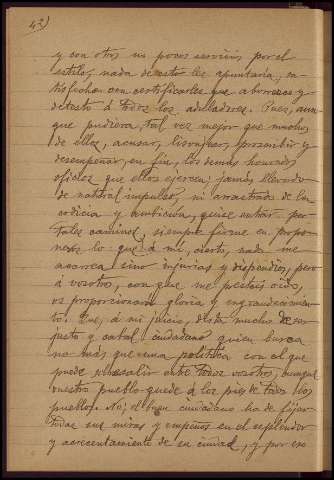 43)
y con otros no pocos servicios por el
estilo; nada de esto les apuntaría, sa-
tisfecho con certificarles que aborrezco y
detesto á todos los aduladores. Pues, aun-
que pudiera, tal vez mejor que muchos
de ellos, acusar, lisonjear, proscribir y
desempeñar, en fin, los demás honrados
oficios que ellos ejercen; jamás llevado
de natural impulso, ni arrastrado de la
codicia y ambición, quise entrar por
tales caminos, siempre firme en propo-
neros lo que á mí, cierto, nada me
acarrea sino injurias y dispendios, pero
á vosotros, con que me prestéis oído,
os proporcionara gloria y engrandecimien-
to. Que, á mi juicio, dista mucho de ser
justo y cabal ciudadano quien busca
no más que una política con el que
puede sobresalir entre todos vosotros, aunque
vuestro pueblo quede á los pies de todos los
pueblos. No; el buen ciudadano ha de fijar
todas sus miras y empeños en el esplendor
y acrecentamiento de su ciudad, y por eso